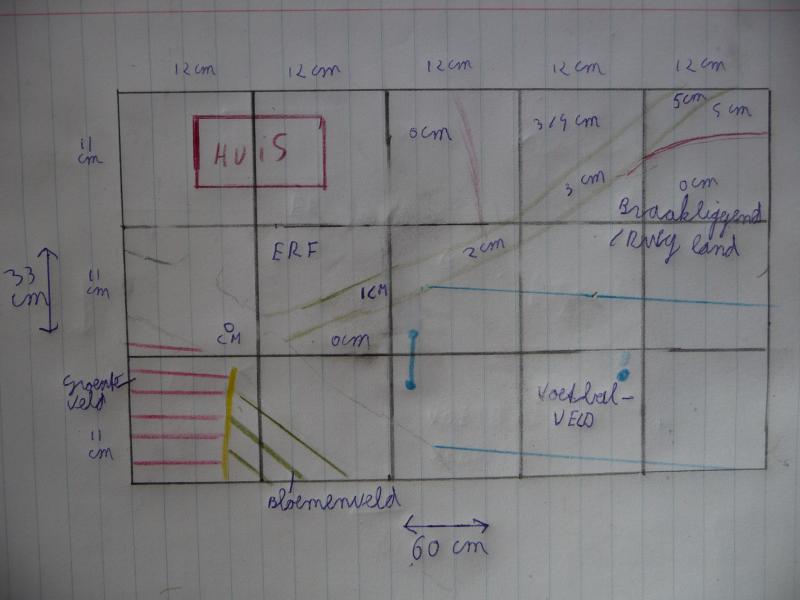 12 cm
12 cm
12 cm
12 cm
12 cm
11
cm
HUIS
0cm
3/4 cm
5cm
5 cm
3 cm
0cm
Braakliggend
land
33
cm
11
cm
ERF
2cm
1cm
0
cm
0cm
Groente
veld
11
cm
Voetbal-
VELD
Bloemenveld
60 cm